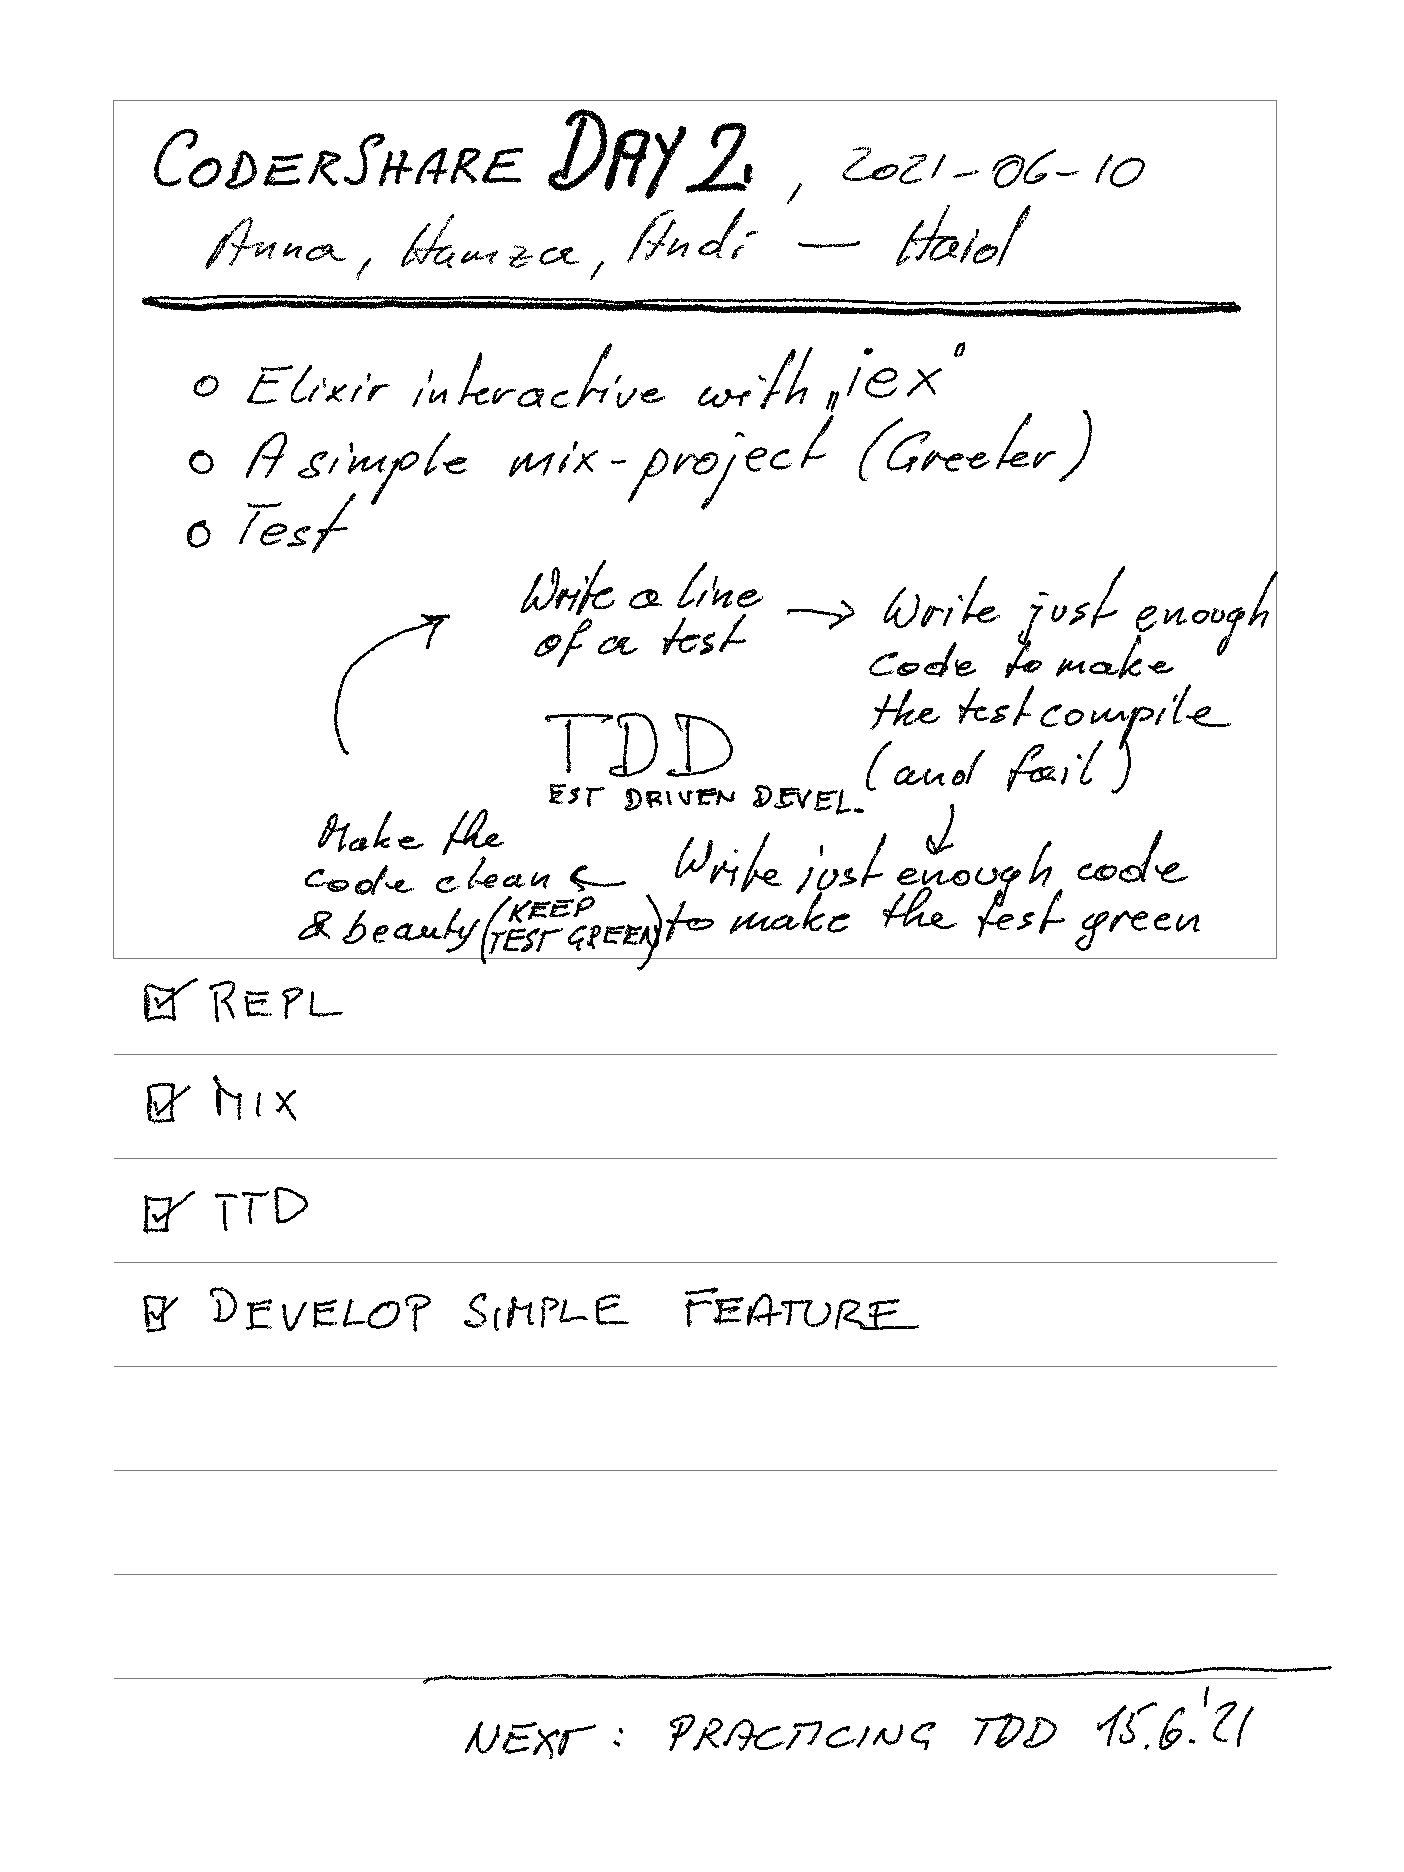 CODERSHARE DAY 2. , 2021-06-10
Anna, Hamza, Andi — Haid
o Elixir interactive with „iex"
o A simple mix-project (Greeter)
o Test
Write a line
of a test
→ Write just enough
code to make
the test compile
(and fail)
TDD
EST DRIVEN DEVEL.
Write just enough code
to make the test green
Make the
code clean ←
& beauty (KEEP
TEST GREEN)
☑ REPL
☑ MIX
☑ TTD
☑ DEVELOP SIMPLE FEATURE
NEXT : PRACTICING TDD 15.6.'21